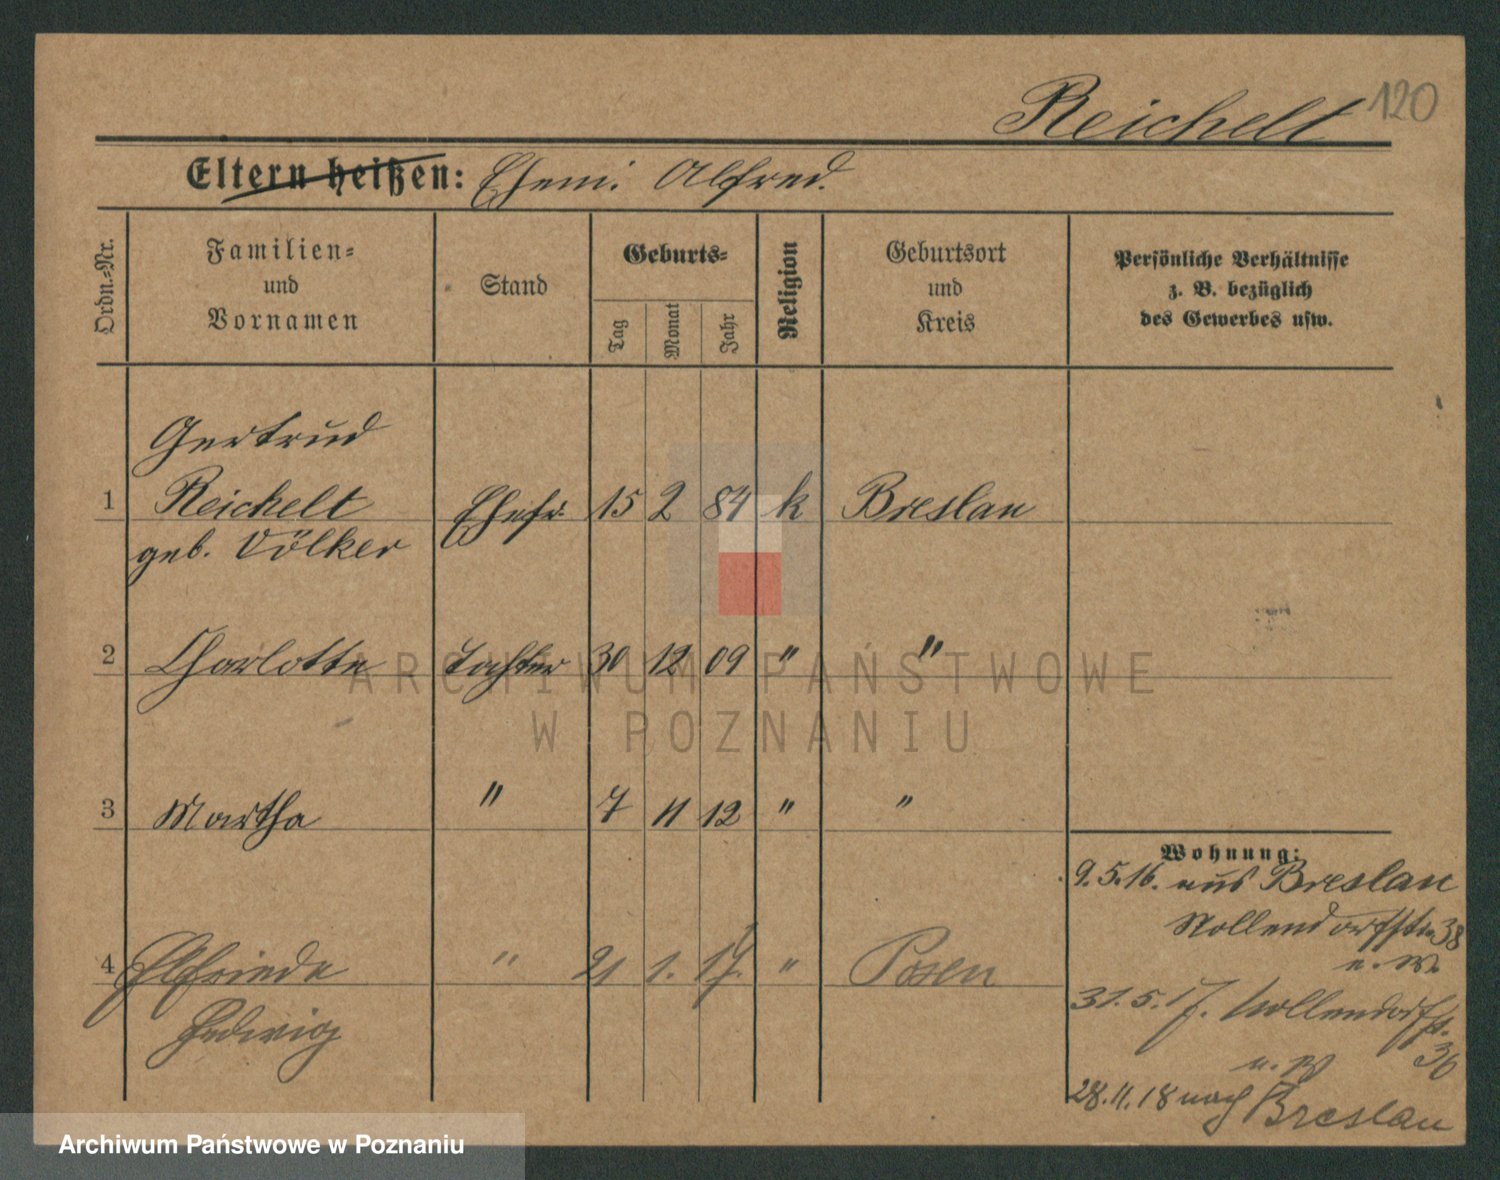 Reichelt 120
Eltern heißen: Ehem. Alfred.
Ordn.=Nr.
Familien=
und
Vornamen
Stand
Geburts=
Tag
Monat
Jahr
Religion
Geburtsort
und
Kreis
Persönliche Verhältnisse
z. B. bezüglich
des Gewerbes usw.
Gertrud
1 Reichelt Ehefr. 15 2 84 k Breslau
geb. Völker
2 Charlotte Tochter 30 12 09 " "
ARCHIWUM PAŃSTWOWE
W POZNANIU
3 Martha " 7 11 12 " "
Wohnung:
9.5.16. aus Breslau
Nollendorfstr. 38
4 Elfriede " 21 1. 17. " Posen
Hedwig
31.5.17. Nollendorfst.
36
28.11.18 nach Breslau
Archiwum Państwowe w Poznaniu